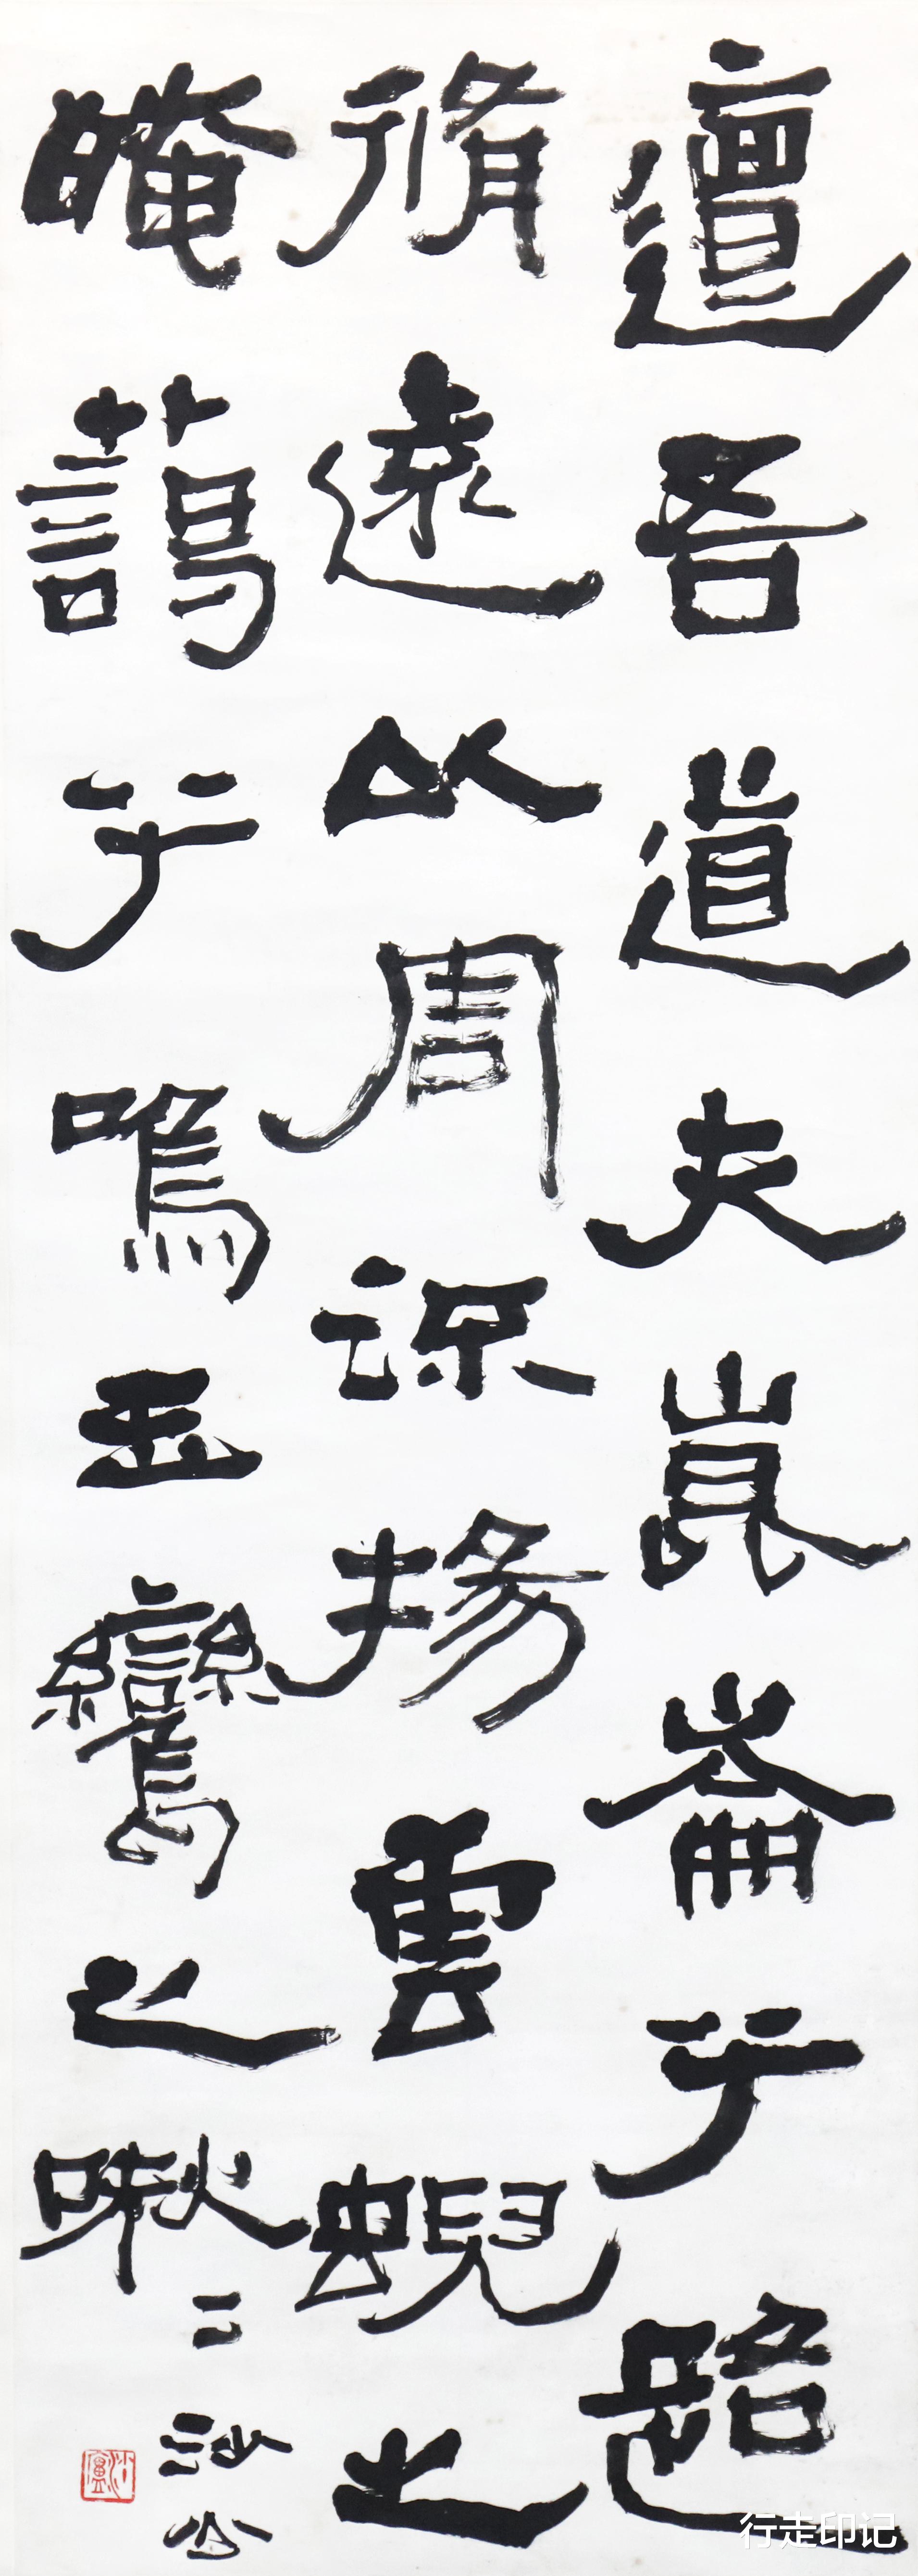 邅吾道夫崑崙兮路
脩遠以周流揚雲蜺之
晻藹兮鳴玉鸞之啾〻
沙公
行走印记